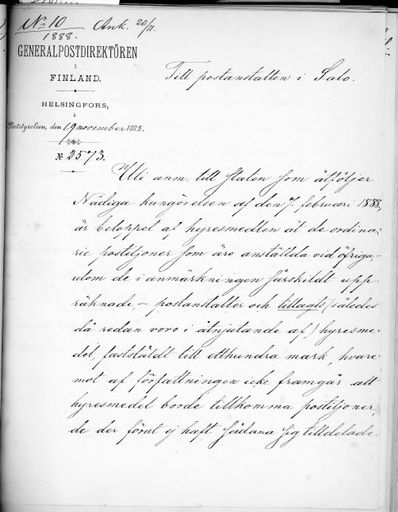 No 10 Ank. 20/11.
1888.
GENERALPOSTDIREKTÖREN
I
FINLAND.
Till postanstalten i Salo.
HELSINGFORS,
å
Poststyrelsen, den 19 november 1888.
№ 2573.
Uti anm. till staten som åtföljer
Nådiga kungörelsen af den 7 februari 1888,
är beloppet af hyresmedlen åt de ordina-
rie postiljoner som äro anställda vid öfriga,
utom de i anmärkningen särskildt upp-
räknade, – postanstalter och tillagts (således
då redan voro i åtnjutande af) hyresme-
del, fastställdt till etthundra mark, hvare-
mot af författningen icke framgår att
hyresmedel borde tillkomma postiljoner,
de der förut ej haft sådana sig tilldelade.